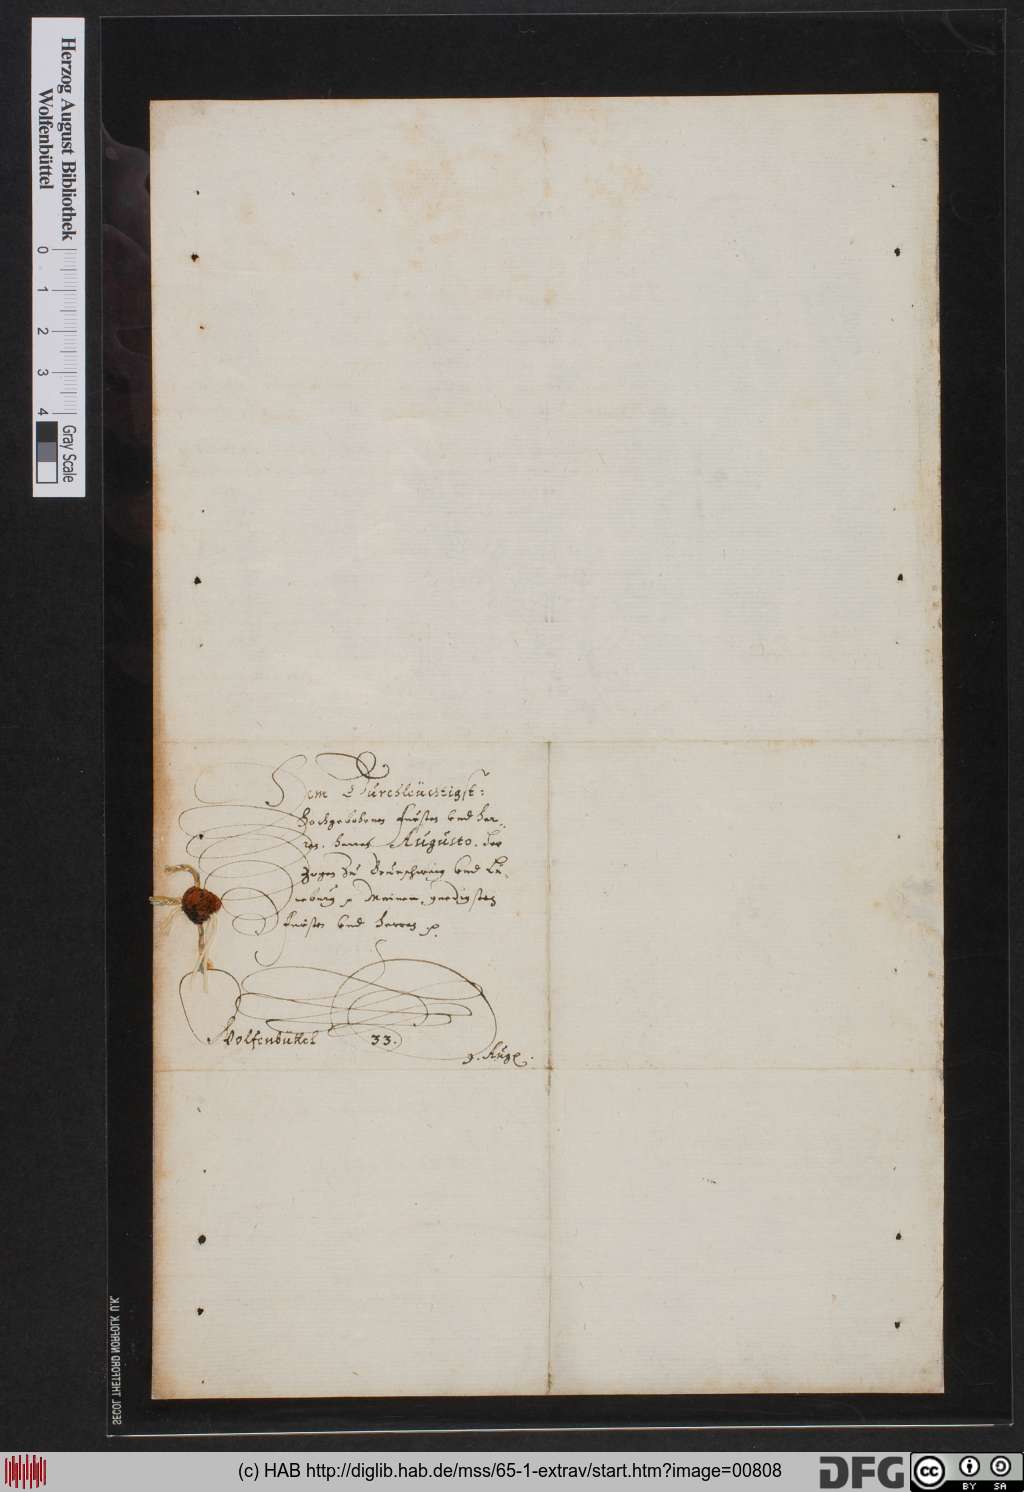 Herzog August Bibliothek
Wolfenbüttel
0 1 2 3 4
Gray Scale
Dem Durchleüchtigst:
Hochgebohrnen Fürsten vnd Her-
ren. Herren Augusto. Her
zogen zu Braunschweig vnd Lü-
neburg Meinem gnedigsten
Fürsten vnd Herren
Wolfenbüttel 33.
9. Aug.
SECOL THETFORD NORFOLK U.K.
(c) HAB http://diglib.hab.de/mss/65-1-extrav/start.htm?image=00808
DFG
cc
BY SA